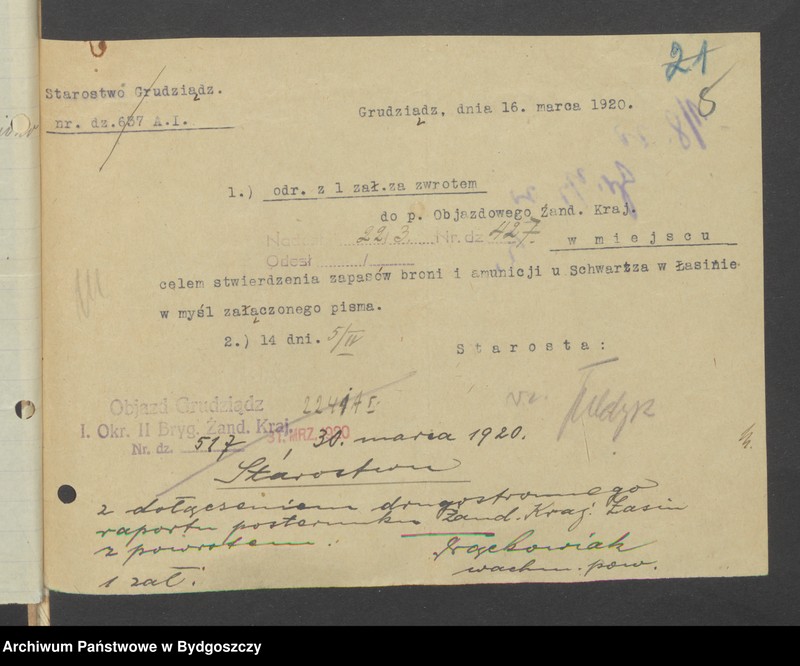 21
5
Starostwo Grudziądz.
nr. dz.637 A.I.
Grudziądz, dnia 16. marca 1920.
1.) odr. z 1 zał.za zwrotem
do p. Objazdowego Żand. Kraj.
22/3. Nr. dz 427.
w miejscu
Odesł
celem stwierdzenia zapasów broni i amunicji u Schwartza w Łasinie
w myśl załączonego pisma.
2.) 14 dni. 5/IV
Starosta:
Objazd Grudziądz
2241 A I.
I. Okr. II Bryg. Żand. Kraj.
31. MRZ. 1920
Nr. dz. 517
30. marca 1920.
Starostwu
z dołączeniem drugostronnego
raportu posterunku Żand. Kraj. Łasin
z powrotem.
Frąckowiak
1 zał.
wachm. pow.
Archiwum Państwowe w Bydgoszczy